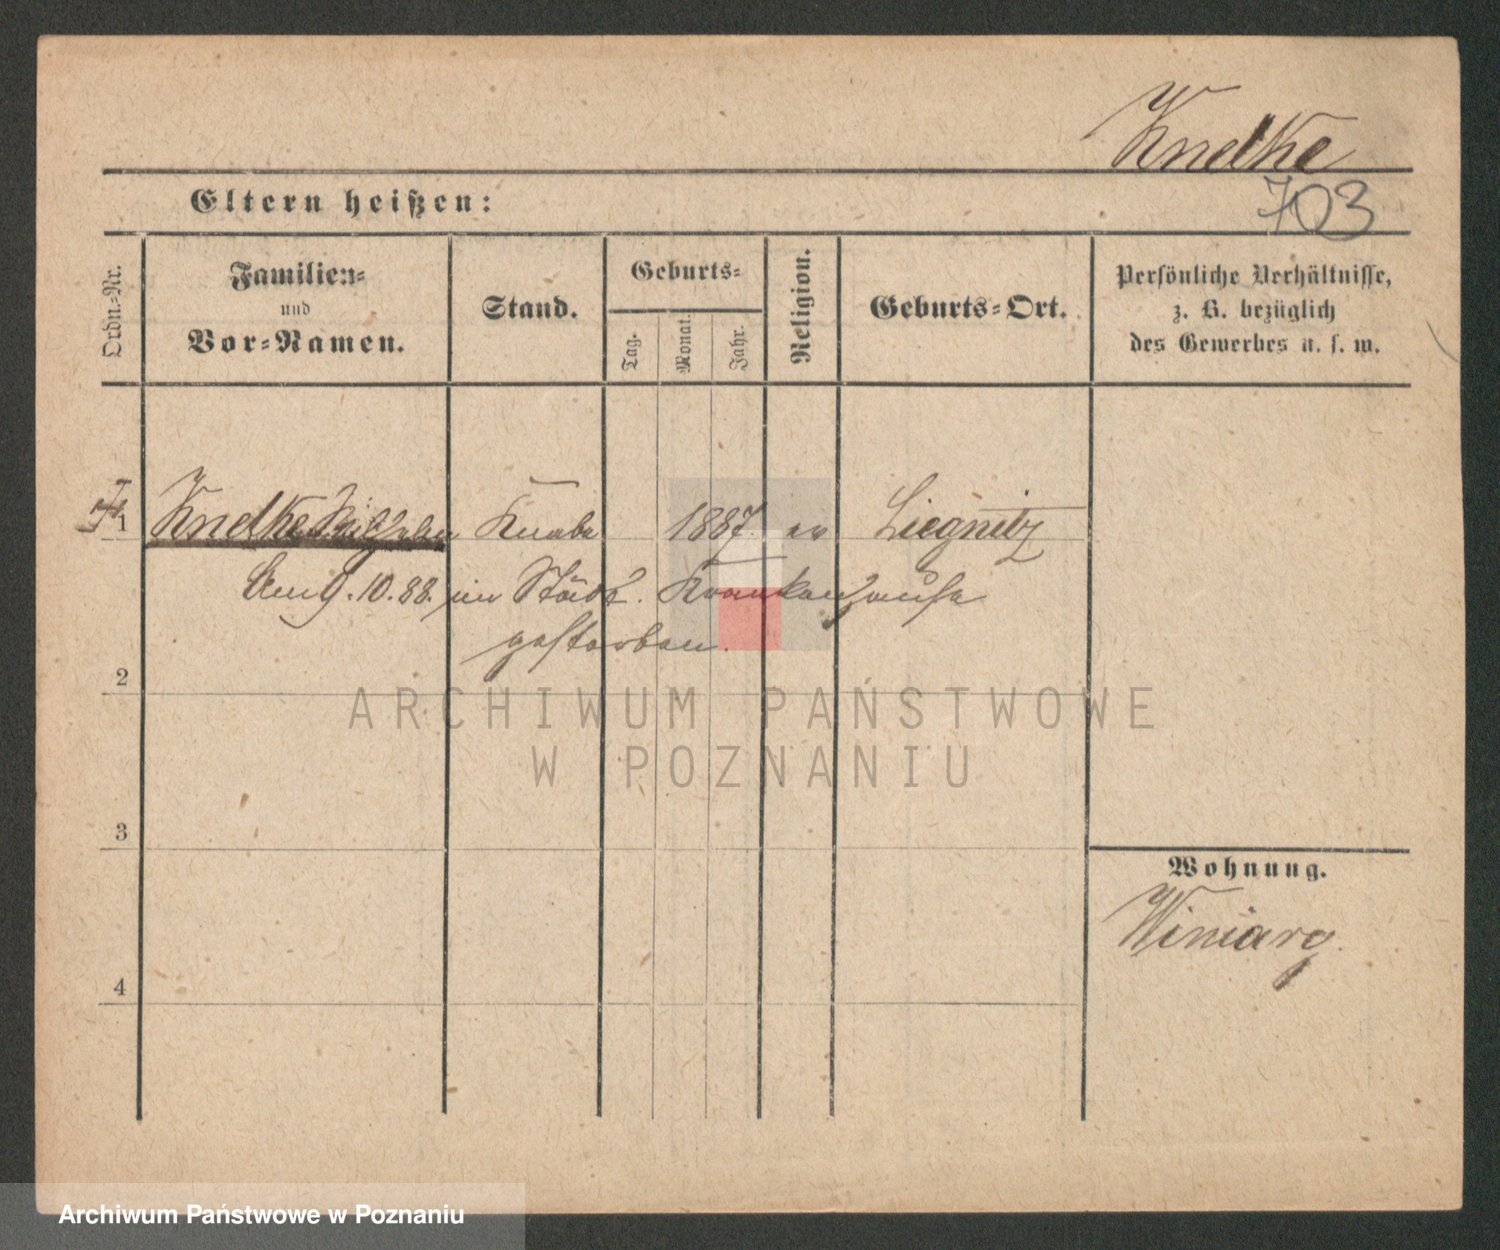 Knelke
703
Eltern heißen:
Ordn.-Nr.
Familien-
und
Vor-Namen.
Stand.
Geburts-
Tag.
Monat.
Jahr.
Religion.
Geburts-Ort.
Persönliche Verhältnisse,
z. B. bezüglich
des Gewerbes u. s. w.
1 Knelke Wilhelm Knabe 1887. ev Liegnitz
Am 9.10.88. im Städt. Krankenhause
gestorben.
2
3
4
Wohnung.
Winiary.
ARCHIWUM PAŃSTWOWE
W POZNANIU
Archiwum Państwowe w Poznaniu